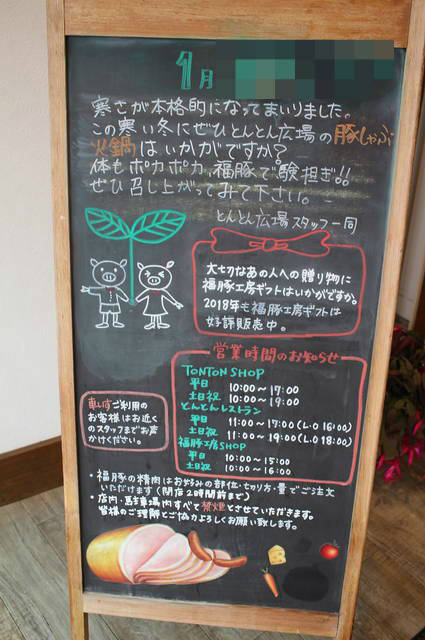 1月
寒さが本格的になってまいりました。
この寒い冬にぜひとんとん広場の豚しゃぶ
火鍋はいかがですか?
体もポカポカ、福豚で験担ぎ!!
ぜひ召し上がってみて下さい。
とんとん広場スタッフ一同
大切なあの人への贈り物に
福豚工房ギフトはいかがですか。
2018年も福豚工房ギフトは
好評販売中。
営業時間のお知らせ
TONTON SHOP
平日 10:00〜17:00
土日祝 10:00〜19:00
とんとんレストラン
平日 11:00〜17:00(L・O 16:00)
土日祝 11:00〜19:00(L・O 18:00)
福豚工房SHOP
平日 10:00〜15:00
土日祝 10:00〜16:00
車いすご利用の
お客様はお近く
のスタッフまでお声
かけください。
・福豚の精肉はお好みの部位・切り方・量でご注文
いただけます(閉店2時間前まで)
・店内・駐車場内すべて禁煙とさせていただきます。
皆様のご理解とご協力よろしくお願い致します。